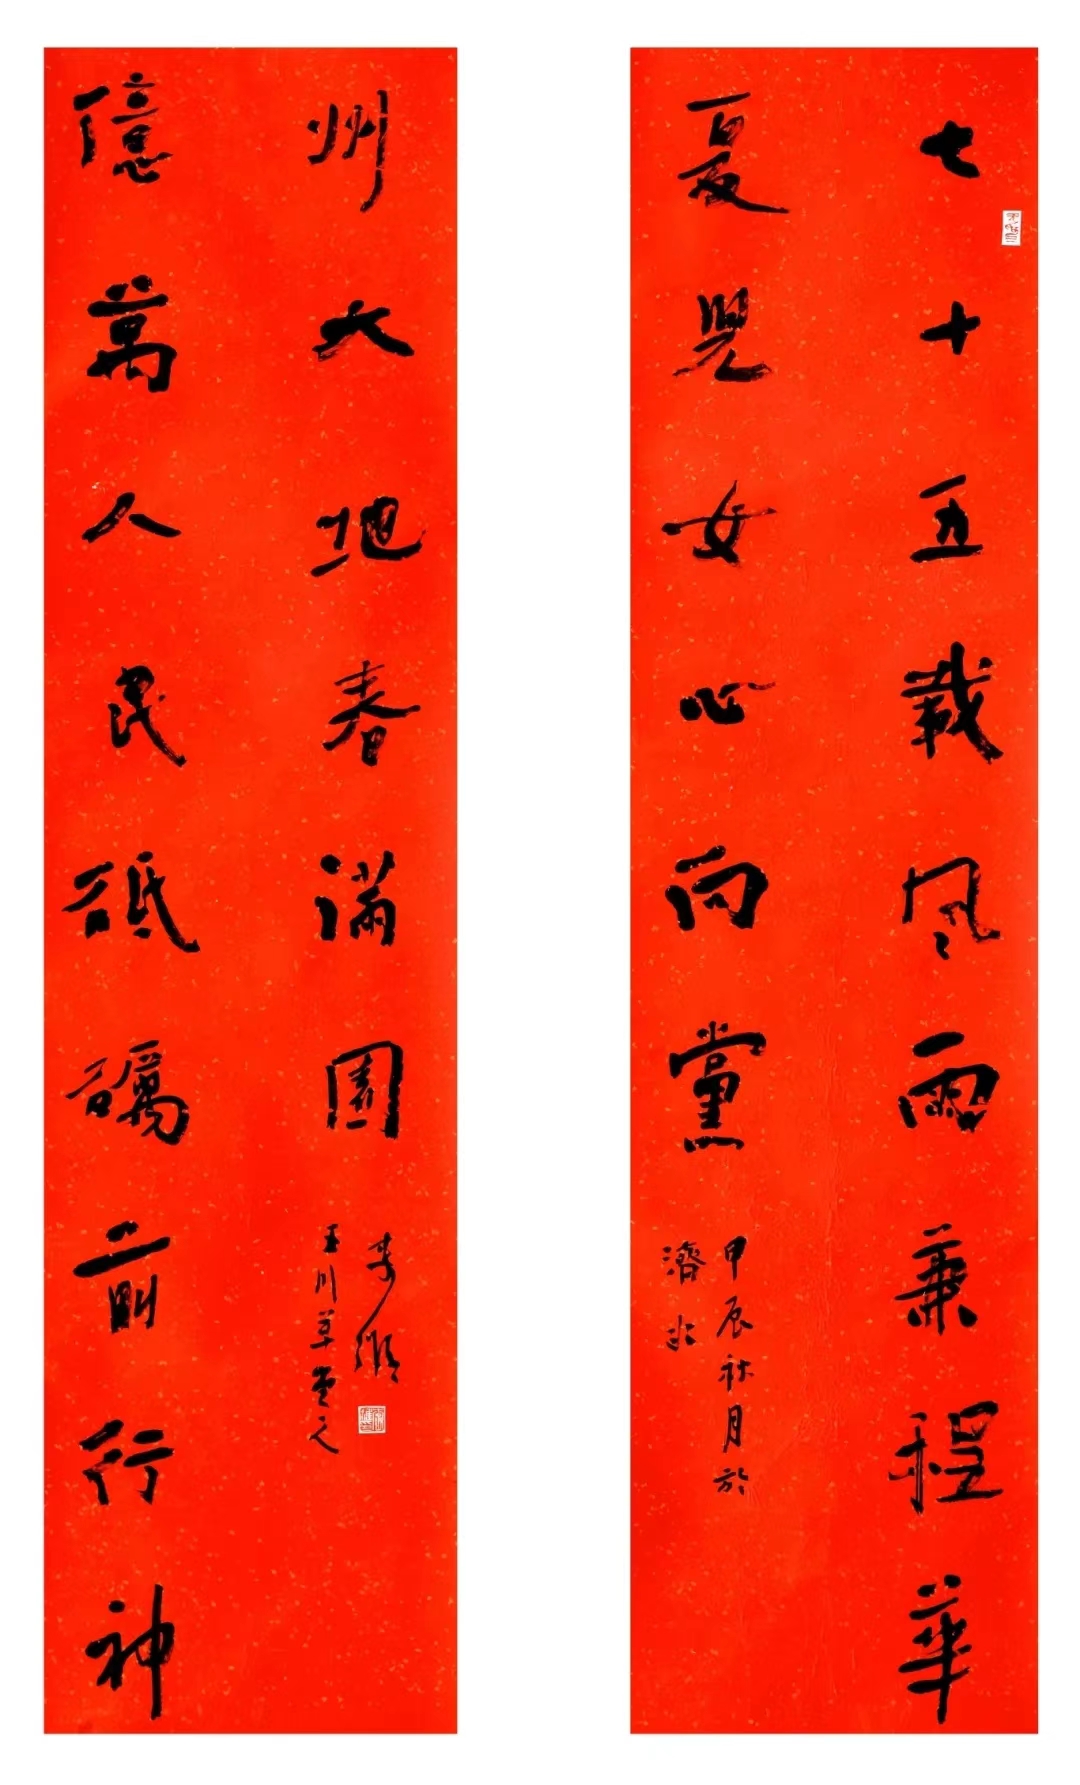 七十五載風雨兼程華
夏兒女心向黨
甲辰秋月於
濟
億萬人民砥礪前行神
州大地春滿園
玉川草堂